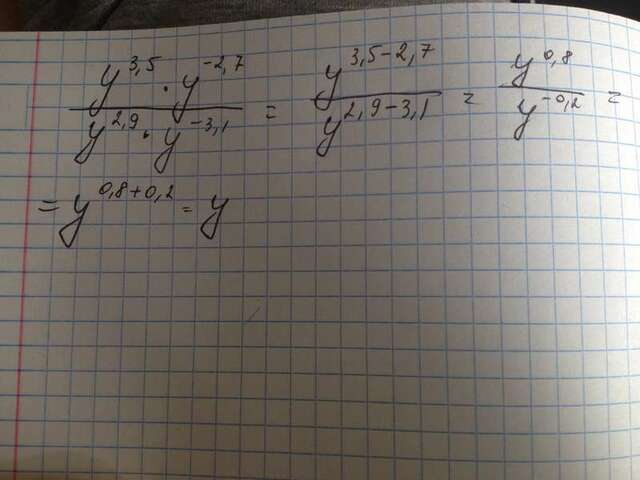 y^3,5 · y^-2,7 / y^2,9 · y^-3,1 = y^3,5-2,7 / y^2,9-3,1 = y^0,8 / y^-0,2 =
= y^0,8+0,2 = y